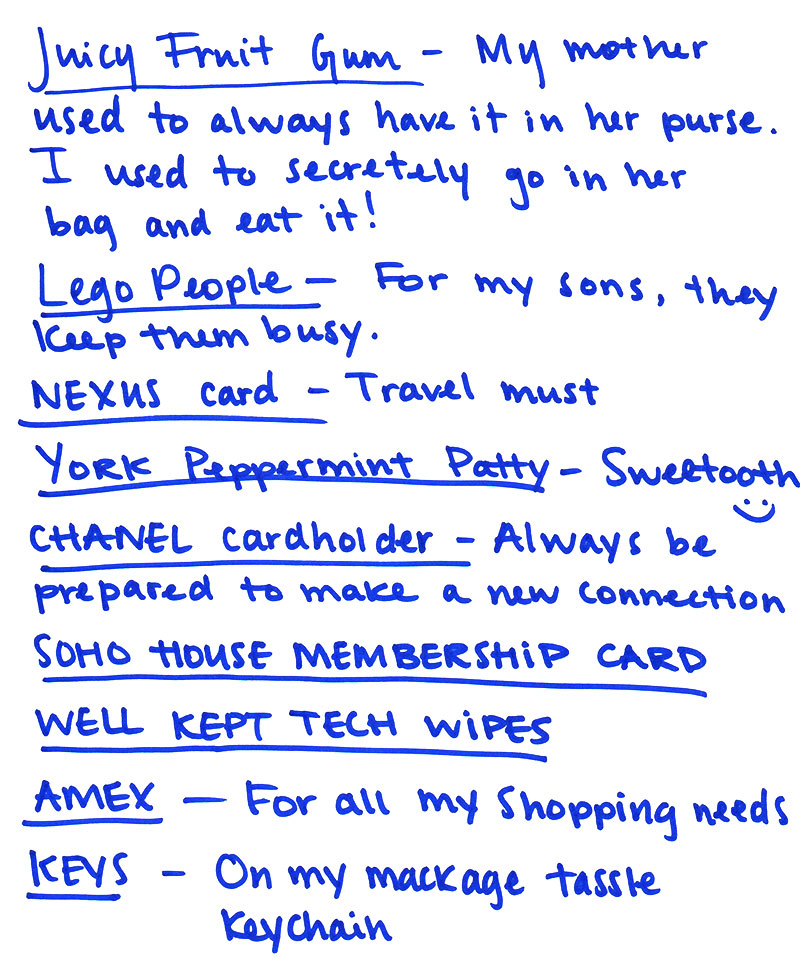 Juicy Fruit Gum - My mother
used to always have it in her purse.
I used to secretely go in her
bag and eat it!
Lego People - For my sons, they
keep them busy.
NEXUS card - Travel must
YORK Peppermint Patty - Sweetooth
CHANEL cardholder - Always be
prepared to make a new connection
SOHO HOUSE MEMBERSHIP CARD
WELL KEPT TECH WIPES
AMEX - For all my shopping needs
KEYS - On my mackage tassle
keychain